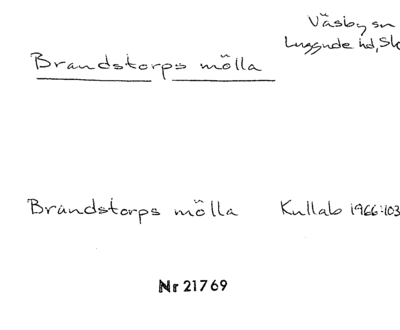 Väsby sn
Luggude hd, Sk
Brandstorps mölla
Brandstorps mölla Kullab 1966:103
Nr 21769